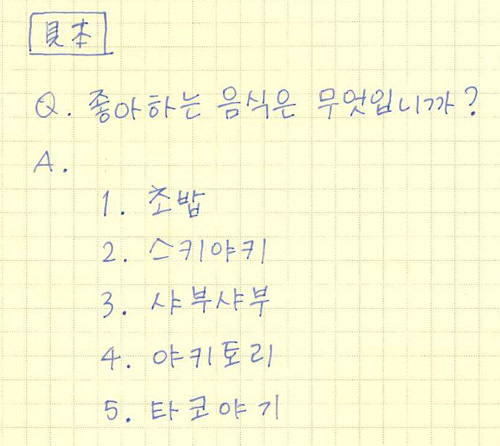 見本
Q. 좋아하는 음식은 무엇입니까?
A.
1. 초밥
2. 스키야키
3. 샤부샤부
4. 야키토리
5. 타코야기